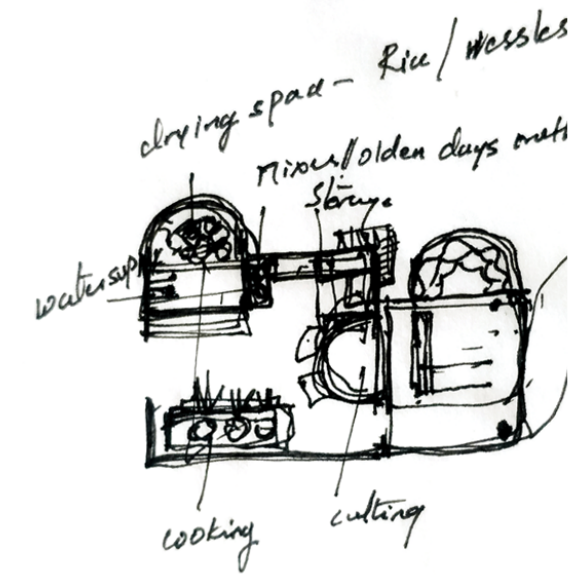 drying space - Rice / vessles
Mixer/olden days meth
Storage
watersupply
cooking
cutting